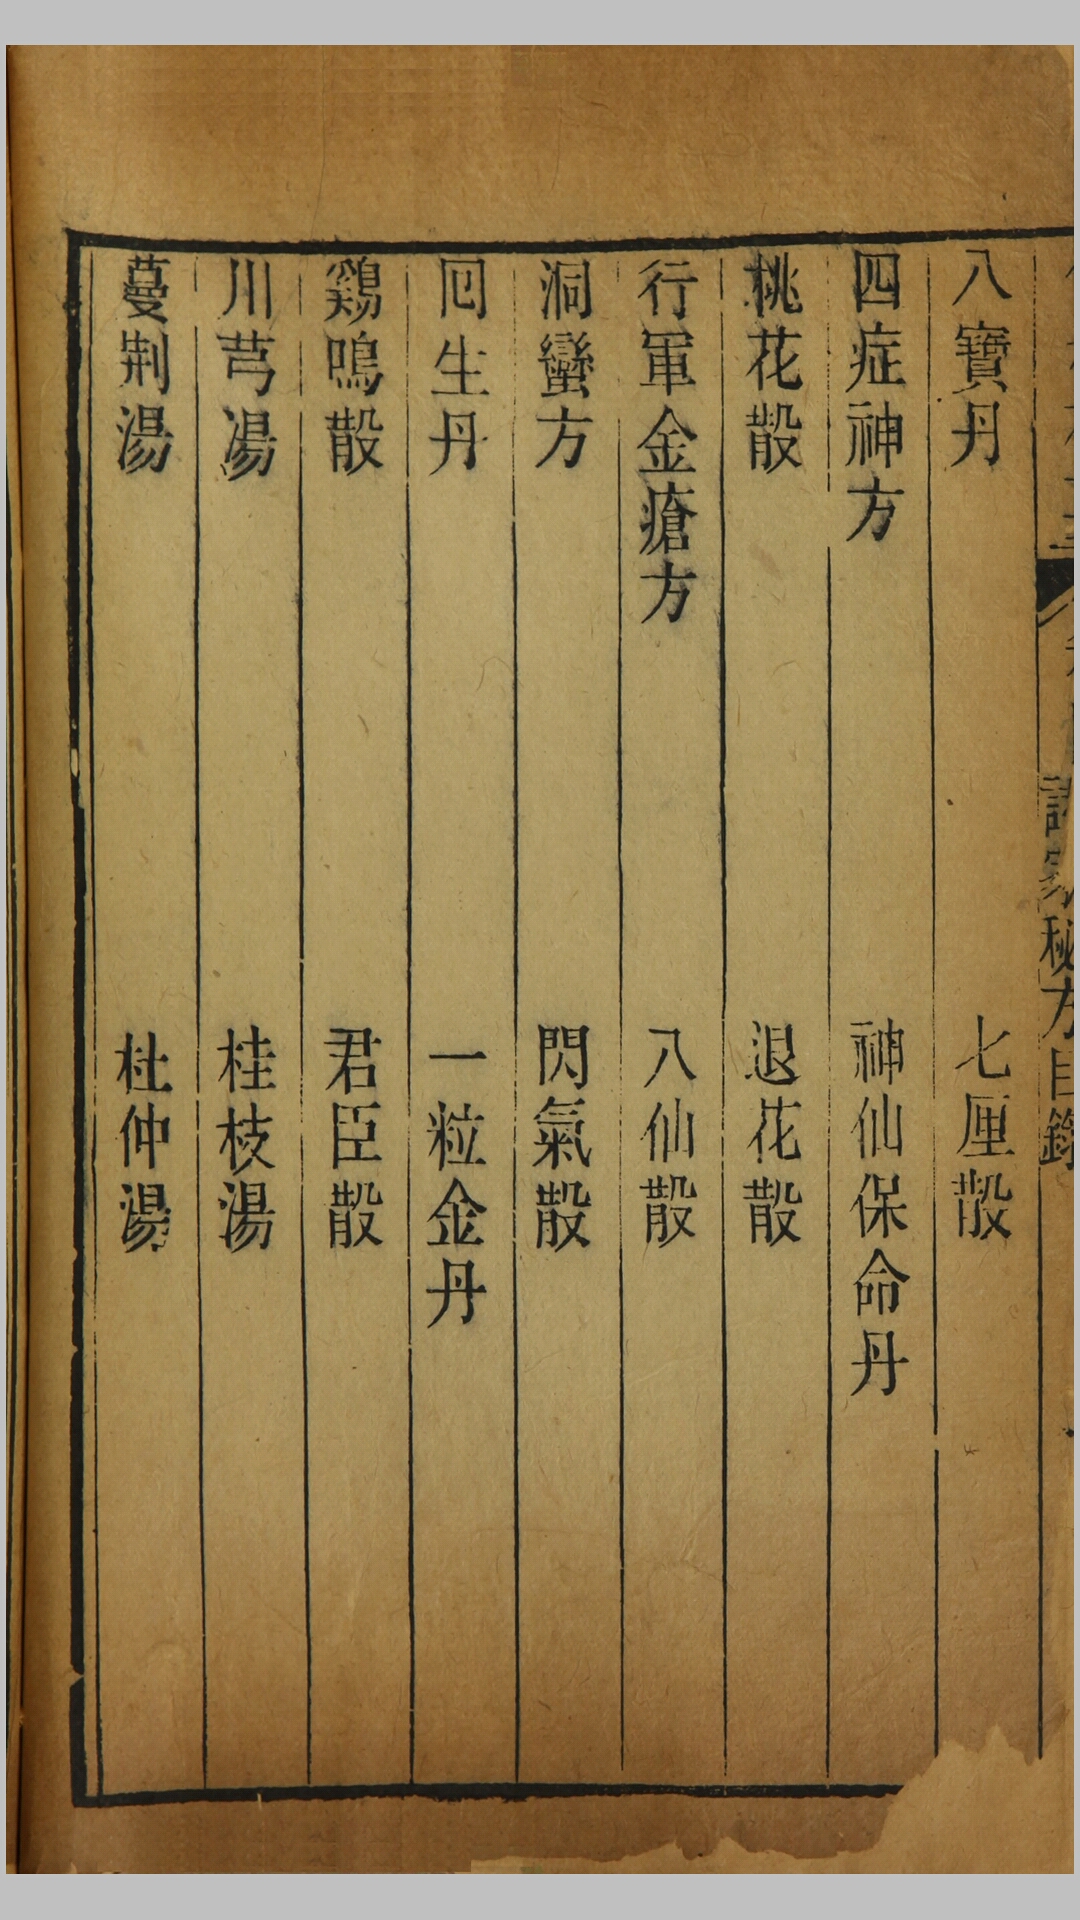 諸家秘方目錄
八寶丹　七厘散
四症神方　神仙保命丹
桃花散　退花散
行軍金瘡方　八仙散
洞蠻方　閃氣散
囘生丹　一粒金丹
鷄鳴散　君臣散
川芎湯　桂枝湯
蔓荆湯　杜仲湯